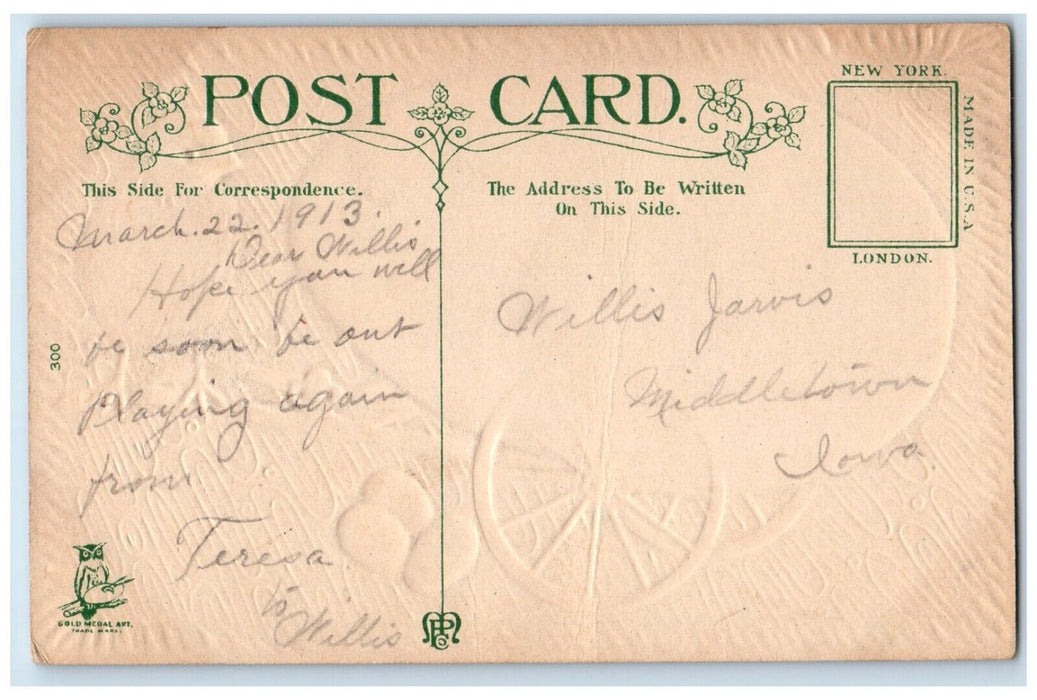 POST CARD.
NEW YORK.
MADE IN U.S.A
LONDON.
This Side For Correspondence.
The Address To Be Written
On This Side.
March. 22. 1913.
Dear Willis
Hope you will
be soon be out
Playing again
from
Teresa
to
Willis
300
GOLD MEDAL ART.
TRADE MARK.
Willis Jarvis
Middletown
Iowa.